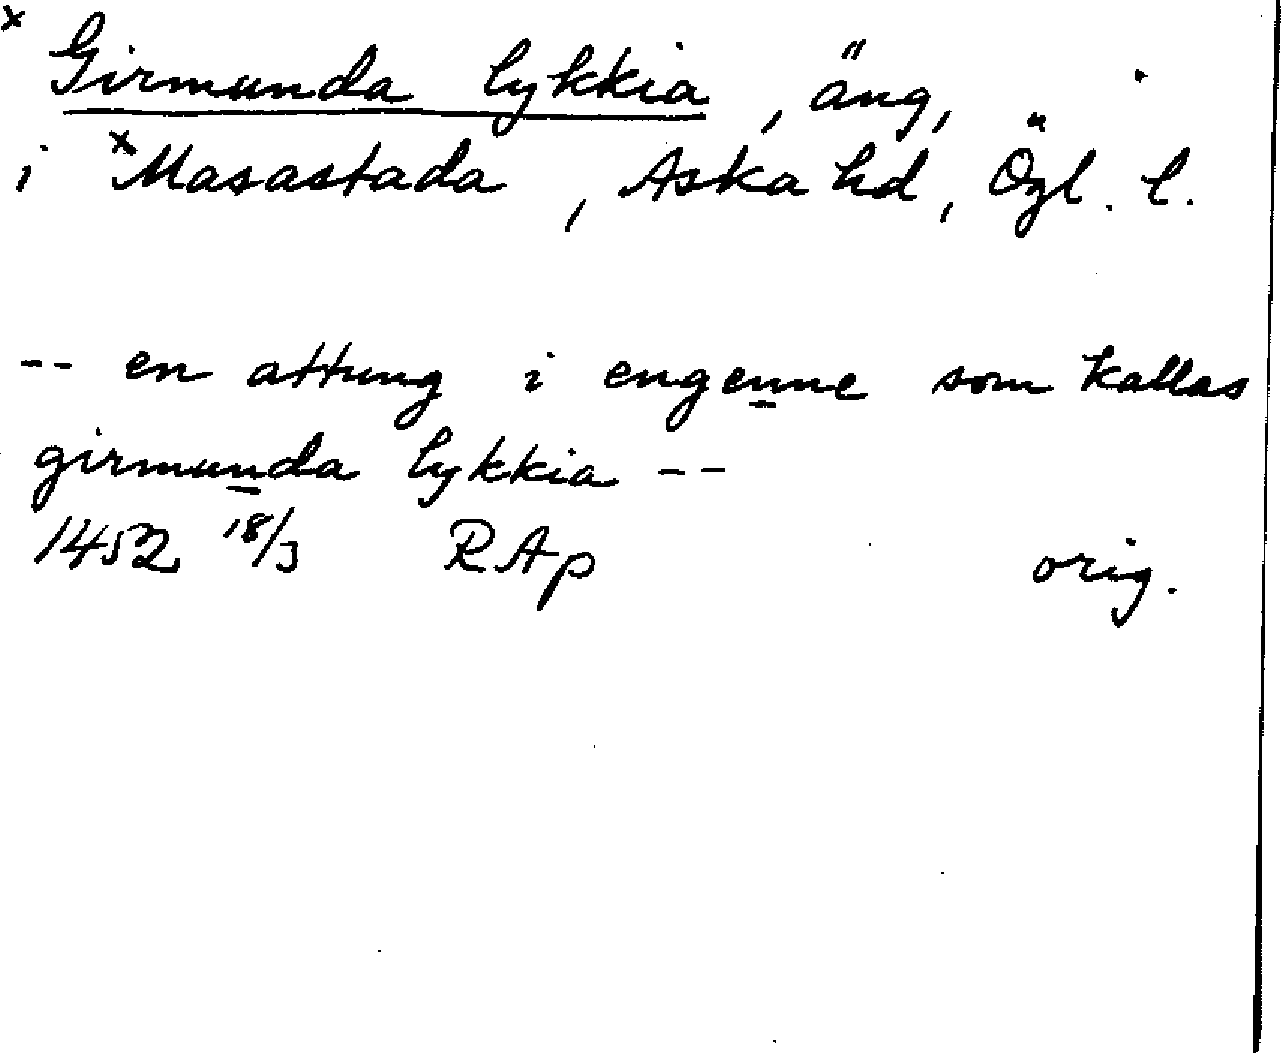 x Girmunda lykkia, äng,
i xMasastada, Aska hd, Ögl. l.
-- en attung i engenne som kallas
girmunda lykkia --
1452 18/3 RAp orig.